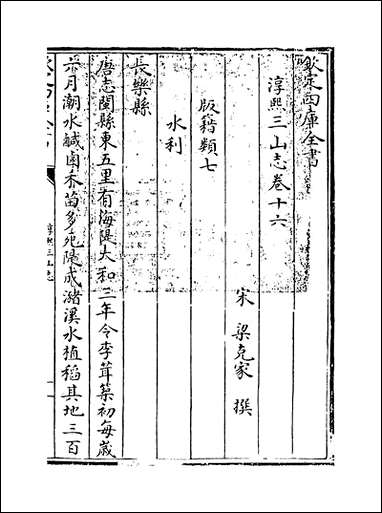 欽定四庫全書
淳熙三山志卷十六
宋 梁克家 撰
版籍類七
水利
長樂縣
唐志閩縣東五里有海隄大和三年令李茸築初每歲
六月潮水鹹鹵禾苗多死隄成瀦溪水植稻其地三百
淳熙三山志